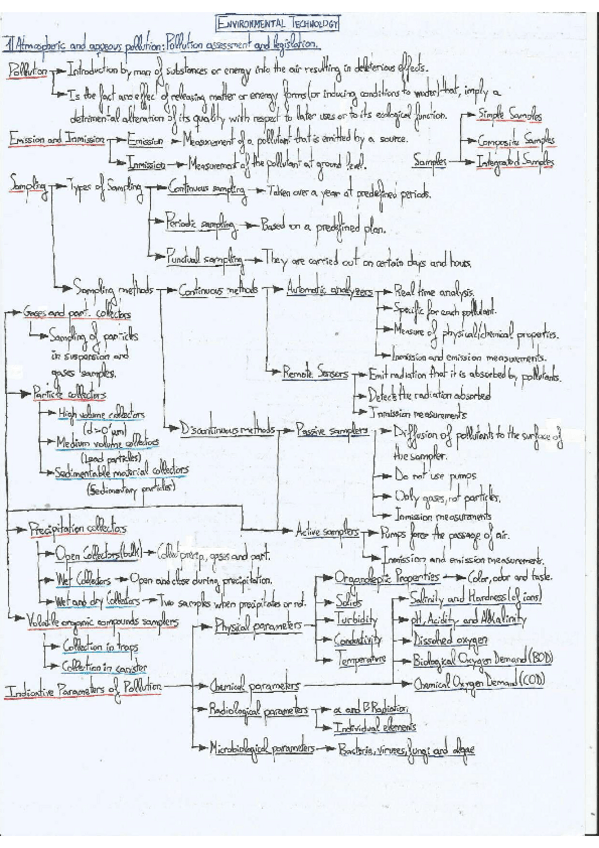 ENVIRONMENTAL TECHNOLOGY
1) Atmospheric and aqueous pollution: Pollution assessment and legislation.
Pollution → Introduction by man of substances or energy into the air resulting in deleterious effects.
Is the fact and effect of releasing matter or energy forms (or inducing conditions to water) that, imply a
detrimental alteration of its quality with respect to later uses or to its ecological function.
Emission and Inmission → Emission → Measurement of a pollutant that is emitted by a source.
Inmission → Measurement of the pollutant at ground level.
Samples → Simple Samples
Composite Samples
Integrated Samples
Sampling → Types of Sampling → Continuous sampling → Taken over a year at predefined periods.
Periodic sampling → Based on a predefined plan.
Punctual sampling → They are carried out on certain days and hours.
Sampling methods → Continuous methods → Automatic analyzers → Real time analysis.
Specific for each pollutant.
Measure of physical/chemical properties.
Inmission and emission measurements.
Remote Sensors → Emit radiation that it is absorbed by pollutants.
Detects the radiation absorbed
Inmission measurements
Discontinuous methods → Passive samplers → Diffusion of pollutants to the surface of
the sampler.
Do not use pumps
Only gases, not particles.
Inmission measurements
Active samplers → Pumps force the passage of air.
Inmission and emission measurements.
Gases and part. collectors
Sampling of particles
in suspension and
gases samples.
Particle collectors
High volume collectors
(d>0'1µm)
Medium volume collectors
(Lead particles)
Sedimentable material collectors
(Sedimentary particles)
Precipitation collectors
Open Collectors (bulk) → Collect precip, gases and part.
Wet Collectors → Open and close during precipitation.
Wet and dry Collectors → Two samples when precipitates or not.
Volatile organic compounds samplers
Collection in traps
Collection in canister
Indicative Parameters of Pollution
Physical parameters → Organoleptic Properties → Color, odor and taste.
Solids
Turbidity
Conductivity
Temperature
Chemical parameters
Salinity and Hardness (of ions)
pH, Acidity and Alkalinity
Dissolved oxygen
Biological Oxygen Demand (BOD)
Chemical Oxygen Demand (COD)
Radiological parameters → α and β Radiation,
Individual elements
Microbiological parameters → Bacteria, viruses, fungi and algae